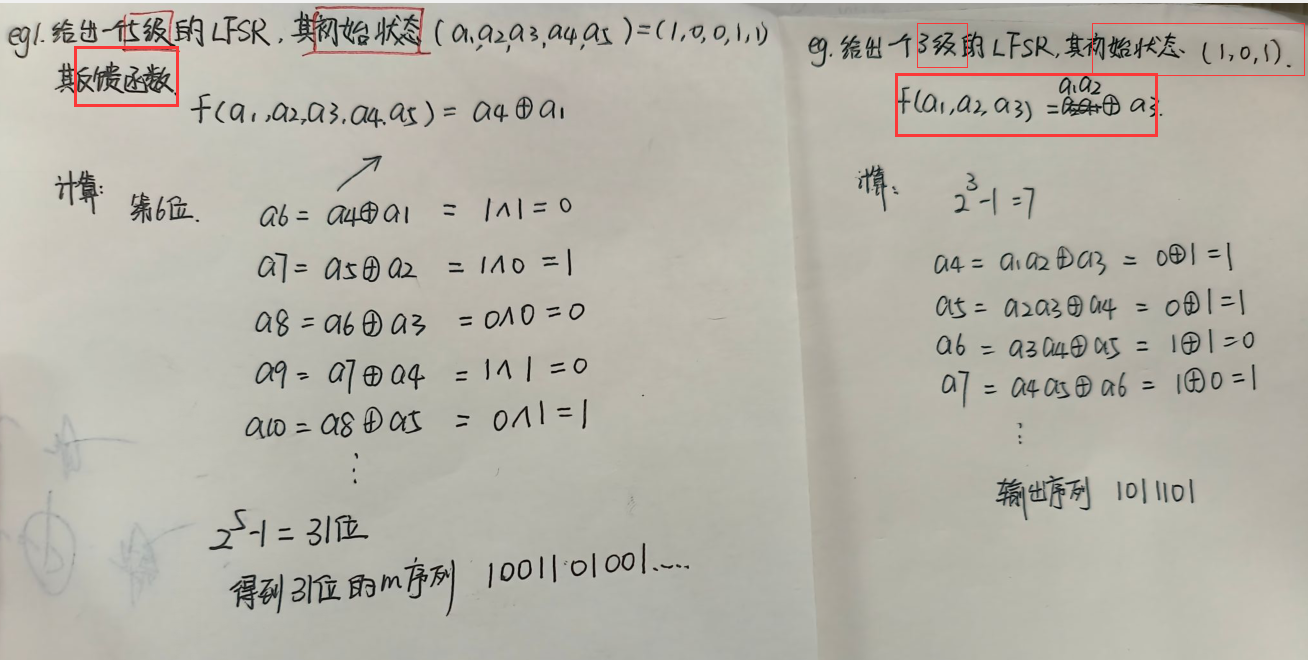 eg1. 给出一个5级的LFSR，其初始状态 (a1,a2,a3,a4,a5)=(1,0,0,1,1)
其反馈函数
f(a1,a2,a3,a4,a5) = a4⊕a1
计算:
第6位. a6 = a4⊕a1 = 1∧1=0
a7 = a5⊕a2 = 1∧0 =1
a8 = a6⊕a3 = 0∧0=0
a9 = a7⊕a4 = 1∧1=0
a10 = a8⊕a5 = 0∧1=1
⋮
2^5-1 = 31位
得到31位的m序列 1001101001.....
eg. 给出一个3级的LFSR,其初始状态 (1,0,1).
f(a1,a2,a3) = a1a2 ⊕ a3.
计算:
2^3-1=7
a4 = a1a2⊕a3 = 0⊕1=1
a5 = a2a3⊕a4 = 0⊕1=1
a6 = a3a4⊕a5 = 1⊕1=0
a7 = a4a5⊕a6 = 1⊕0=1
⋮
输出序列 1011101